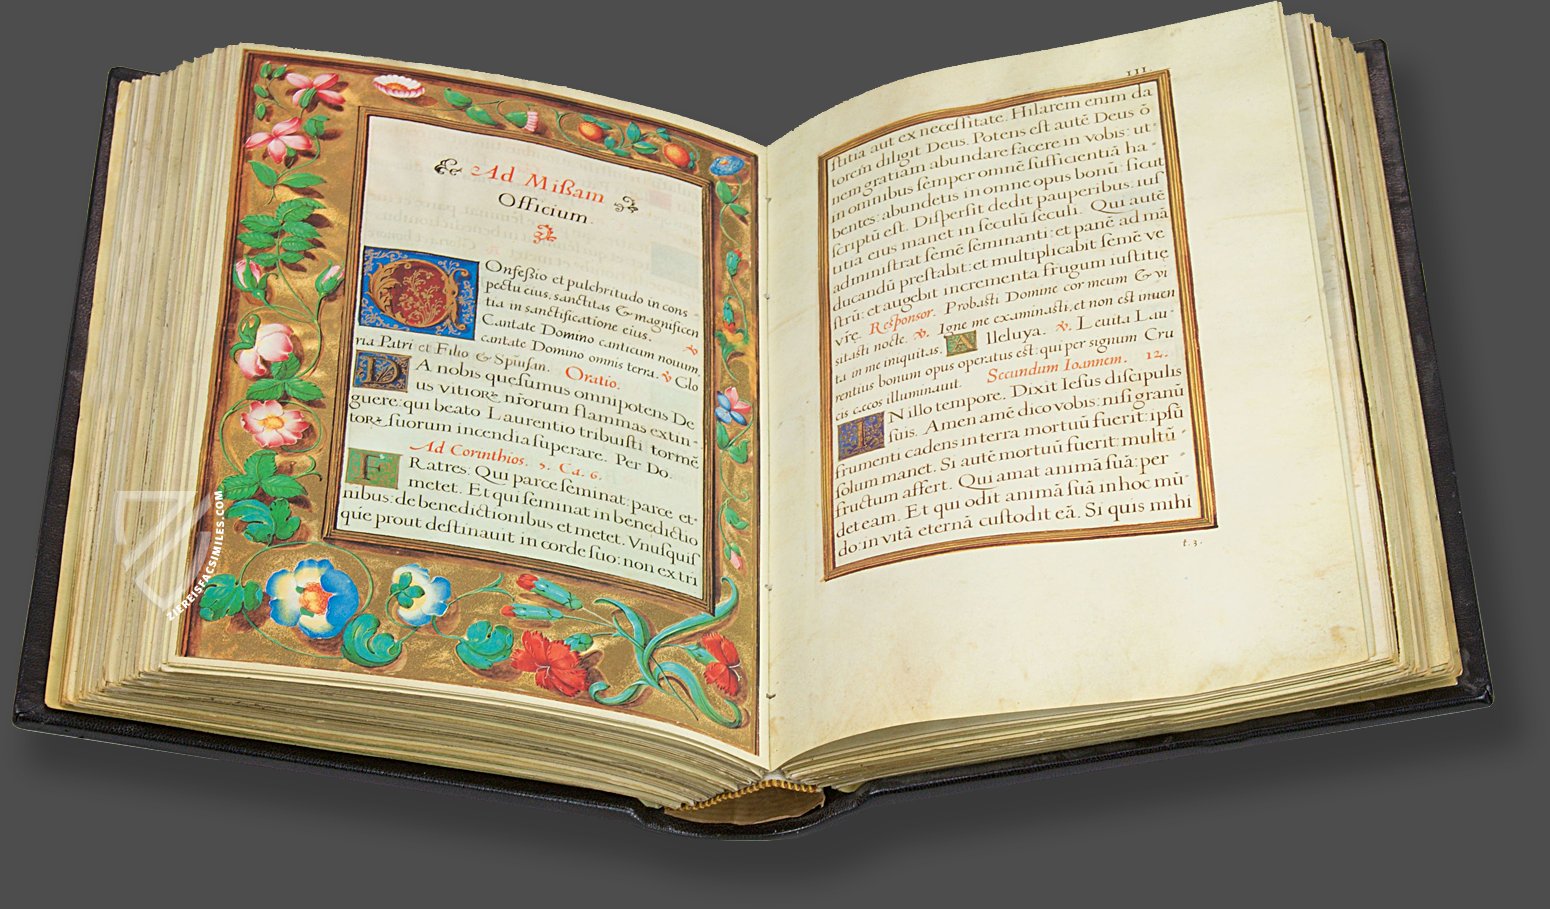 Ad Missam
Officium.
COnfessio et pulchritudo in cons-
pectu eius, sanctitas & magnificen
tia in sanctificatione eius.
Cantate Domino canticum nouum,
cantate Domino omnis terra. ℣ Glo
ria Patri et Filio & Spiũsan. Oratio.
DA nobis quęsumus omnipotens De
us vitiorꝝ nr̃orum flammas extin-
guere: qui beato Laurentio tribuisti tormẽ
torꝝ suorum incendia superare. Per Do.
Ad Corinthios. 2. Ca. 6.
FRatres: Qui parce seminat: parce et-
metet. Et qui seminat in benedictio
nibus: de benedictionibus et metet. Vnusquis
que prout destinauit in corde suo: non ex tri
III.
stitia aut ex necessitate. Hilarem enim da
torem diligit Deus. Potens est autẽ Deus õ
nem gratiam abundare facere in vobis: ut
in omnibus semper omnẽ sufficientiã ha-
bentes: abundetis in omne opus bonũ: sicut
scriptũ est. Dispersit dedit pauperibus: ius
titia eius manet in seculũ seculi. Qui autẽ
administrat semẽ seminanti: et panẽ ad mã
ducandũ prestabit: et multiplicabit semẽ ve
strũ: et augebit incrementa frugum iustitię
vrę. Responsor. Probasti Domine cor meum & vi
sitasti nocte. ℣. Igne me examinasti, et non est inuen
ta in me iniquitas. Alleluya. ℣. Leuita Lau-
rentius bonum opus operatus est: qui per signum Cru
cis cæcos illuminauit. Secundum Ioannem. 12.
IN illo tempore. Dixit Iesus discipulis
suis. Amen amẽ dico vobis: nisi granũ
frumenti cadens in terra mortuũ fuerit: ipsũ
solum manet. Si autẽ mortuũ fuerit: multũ
fructum affert. Qui amat animã suã: per
det eam. Et qui odit animã suã in hoc mũ-
do: in vitã eternã custodit eã. Si quis mihi
t.3.
ZIEREISFACSIMILES.COM